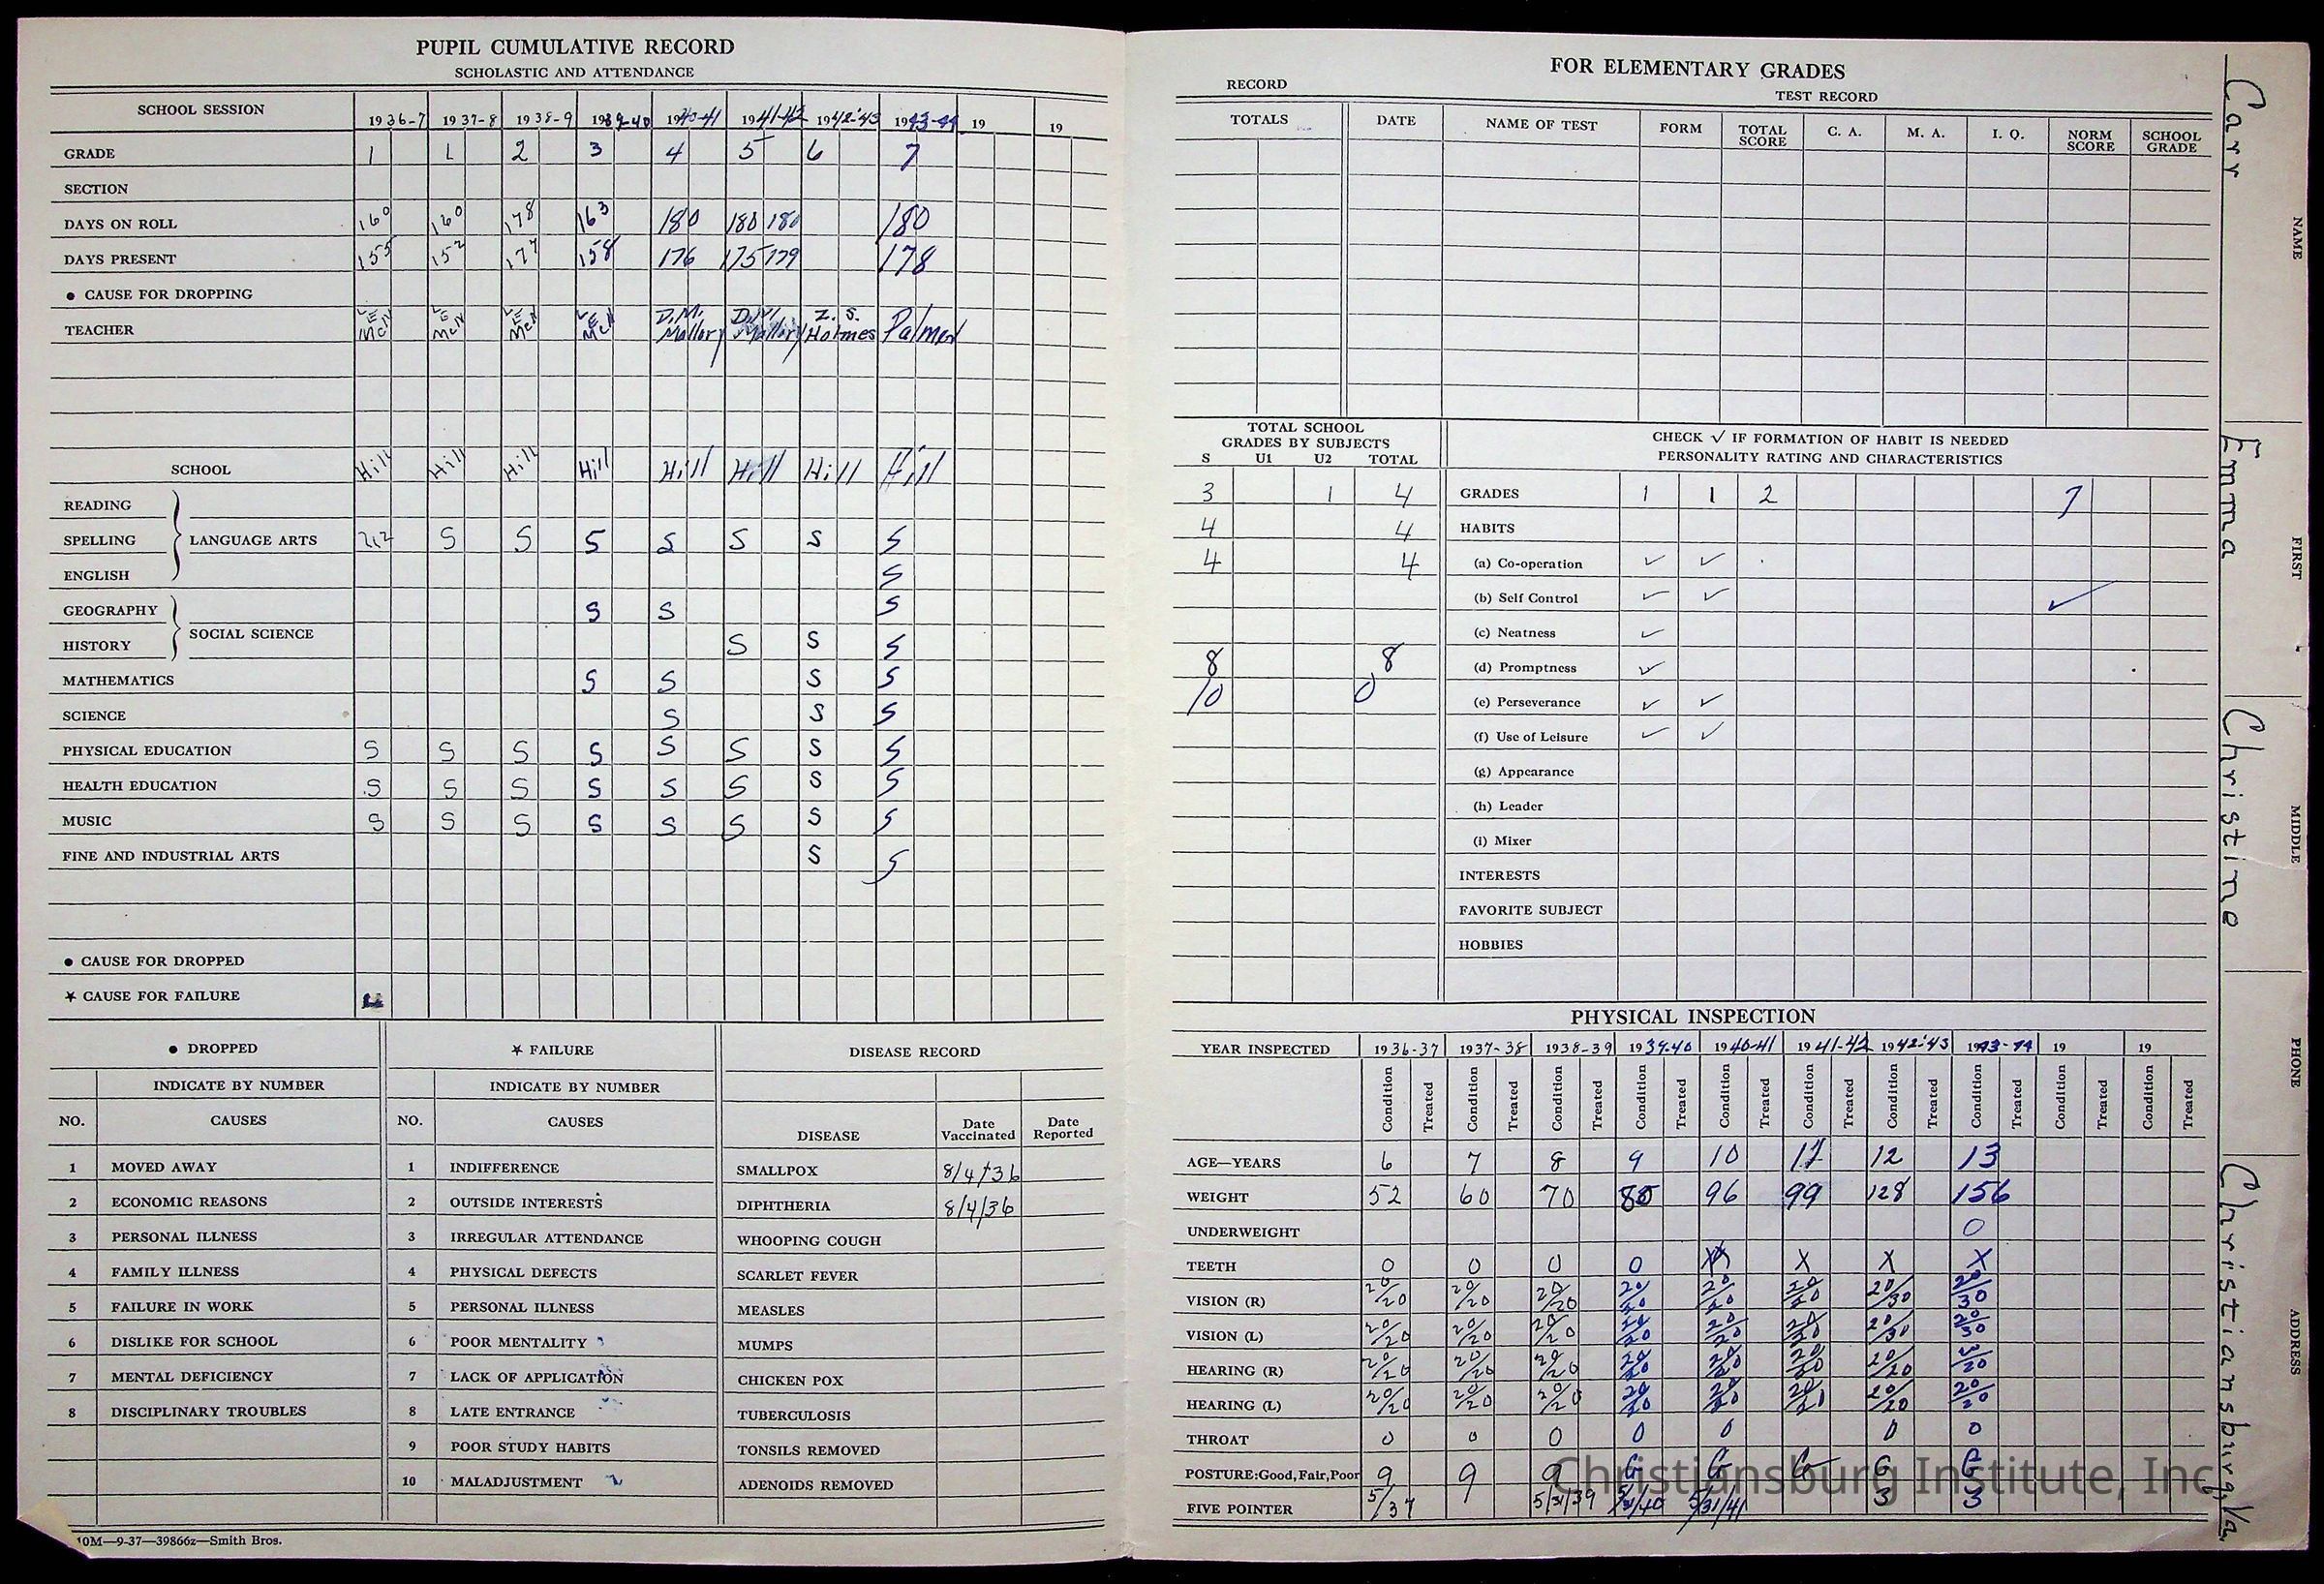 PUPIL CUMULATIVE RECORD
SCHOLASTIC AND ATTENDANCE
SCHOOL SESSION 1936-7 1937-8 1938-9 1939-40 1940-41 1941-42 1942-43 1943-44 19 19
GRADE 1 1 2 3 4 5 6 7
SECTION
DAYS ON ROLL 160 160 178 163 180 180 180 180
DAYS PRESENT 155 152 177 158 176 175 179 178
• CAUSE FOR DROPPING
TEACHER D.M. Mallory D.M. Mallory Z. S. Holmes Palmer
SCHOOL Hill Hill Hill Hill Hill Hill Hill Hill
READING
SPELLING LANGUAGE ARTS S S S S S S S
ENGLISH S
GEOGRAPHY S S S
SOCIAL SCIENCE
HISTORY S S S
MATHEMATICS S S S S
SCIENCE S S S
PHYSICAL EDUCATION S S S S S S S S
HEALTH EDUCATION S S S S S S S S
MUSIC S S S S S S S S
FINE AND INDUSTRIAL ARTS S S
• CAUSE FOR DROPPED
★ CAUSE FOR FAILURE
• DROPPED
INDICATE BY NUMBER
NO. CAUSES
1 MOVED AWAY
2 ECONOMIC REASONS
3 PERSONAL ILLNESS
4 FAMILY ILLNESS
5 FAILURE IN WORK
6 DISLIKE FOR SCHOOL
7 MENTAL DEFICIENCY
8 DISCIPLINARY TROUBLES
★ FAILURE
INDICATE BY NUMBER
NO. CAUSES
1 INDIFFERENCE
2 OUTSIDE INTERESTS
3 IRREGULAR ATTENDANCE
4 PHYSICAL DEFECTS
5 PERSONAL ILLNESS
6 POOR MENTALITY
7 LACK OF APPLICATION
8 LATE ENTRANCE
9 POOR STUDY HABITS
10 MALADJUSTMENT
DISEASE RECORD
DISEASE Date Vaccinated Date Reported
SMALLPOX 8/4/36
DIPHTHERIA 8/4/36
WHOOPING COUGH
SCARLET FEVER
MEASLES
MUMPS
CHICKEN POX
TUBERCULOSIS
TONSILS REMOVED
ADENOIDS REMOVED
10M—9-37—39866z—Smith Bros.
FOR ELEMENTARY GRADES
RECORD
TEST RECORD
TOTALS DATE NAME OF TEST FORM TOTAL SCORE C. A. M. A. I. Q. NORM SCORE SCHOOL GRADE
TOTAL SCHOOL
GRADES BY SUBJECTS
S U1 U2 TOTAL
3 1 4
4 4
4 4
8 8
10 0
CHECK ✓ IF FORMATION OF HABIT IS NEEDED
PERSONALITY RATING AND CHARACTERISTICS
GRADES 1 1 2 7
HABITS
(a) Co-operation ✓ ✓
(b) Self Control ✓ ✓ ✓
(c) Neatness ✓
(d) Promptness ✓
(e) Perseverance ✓ ✓
(f) Use of Leisure ✓ ✓
(g) Appearance
(h) Leader
(i) Mixer
INTERESTS
FAVORITE SUBJECT
HOBBIES
PHYSICAL INSPECTION
YEAR INSPECTED 1936-37 1937-38 1938-39 1939-40 1940-41 1941-42 1942-43 1943-44 19 19
Condition Treated Condition Treated Condition Treated Condition Treated Condition Treated Condition Treated Condition Treated Condition Treated Condition Treated Condition Treated
AGE—YEARS 6 7 8 9 10 11 12 13
WEIGHT 52 60 70 85 96 99 128 156
UNDERWEIGHT 0
TEETH 0 0 0 0 X X X X
VISION (R) 20/20 20/20 20/20 20/20 20/20 20/20 20/30 20/30
VISION (L) 20/20 20/20 20/20 20/20 20/20 20/20 20/30 20/30
HEARING (R) 20/20 20/20 20/20 20/20 20/20 20/20 20/20 20/20
HEARING (L) 20/20 20/20 20/20 20/20 20/20 20/20 20/20 20/20
THROAT 0 0 0 0 0 0 0
POSTURE: Good, Fair, Poor g g g G G G G G
FIVE POINTER 5/37 5/31/39 5/31/40 5/31/41 3 3
Christiansburg Institute, Inc.
Carr Emma Christine Christiansburg, Va.
NAME FIRST MIDDLE PHONE ADDRESS